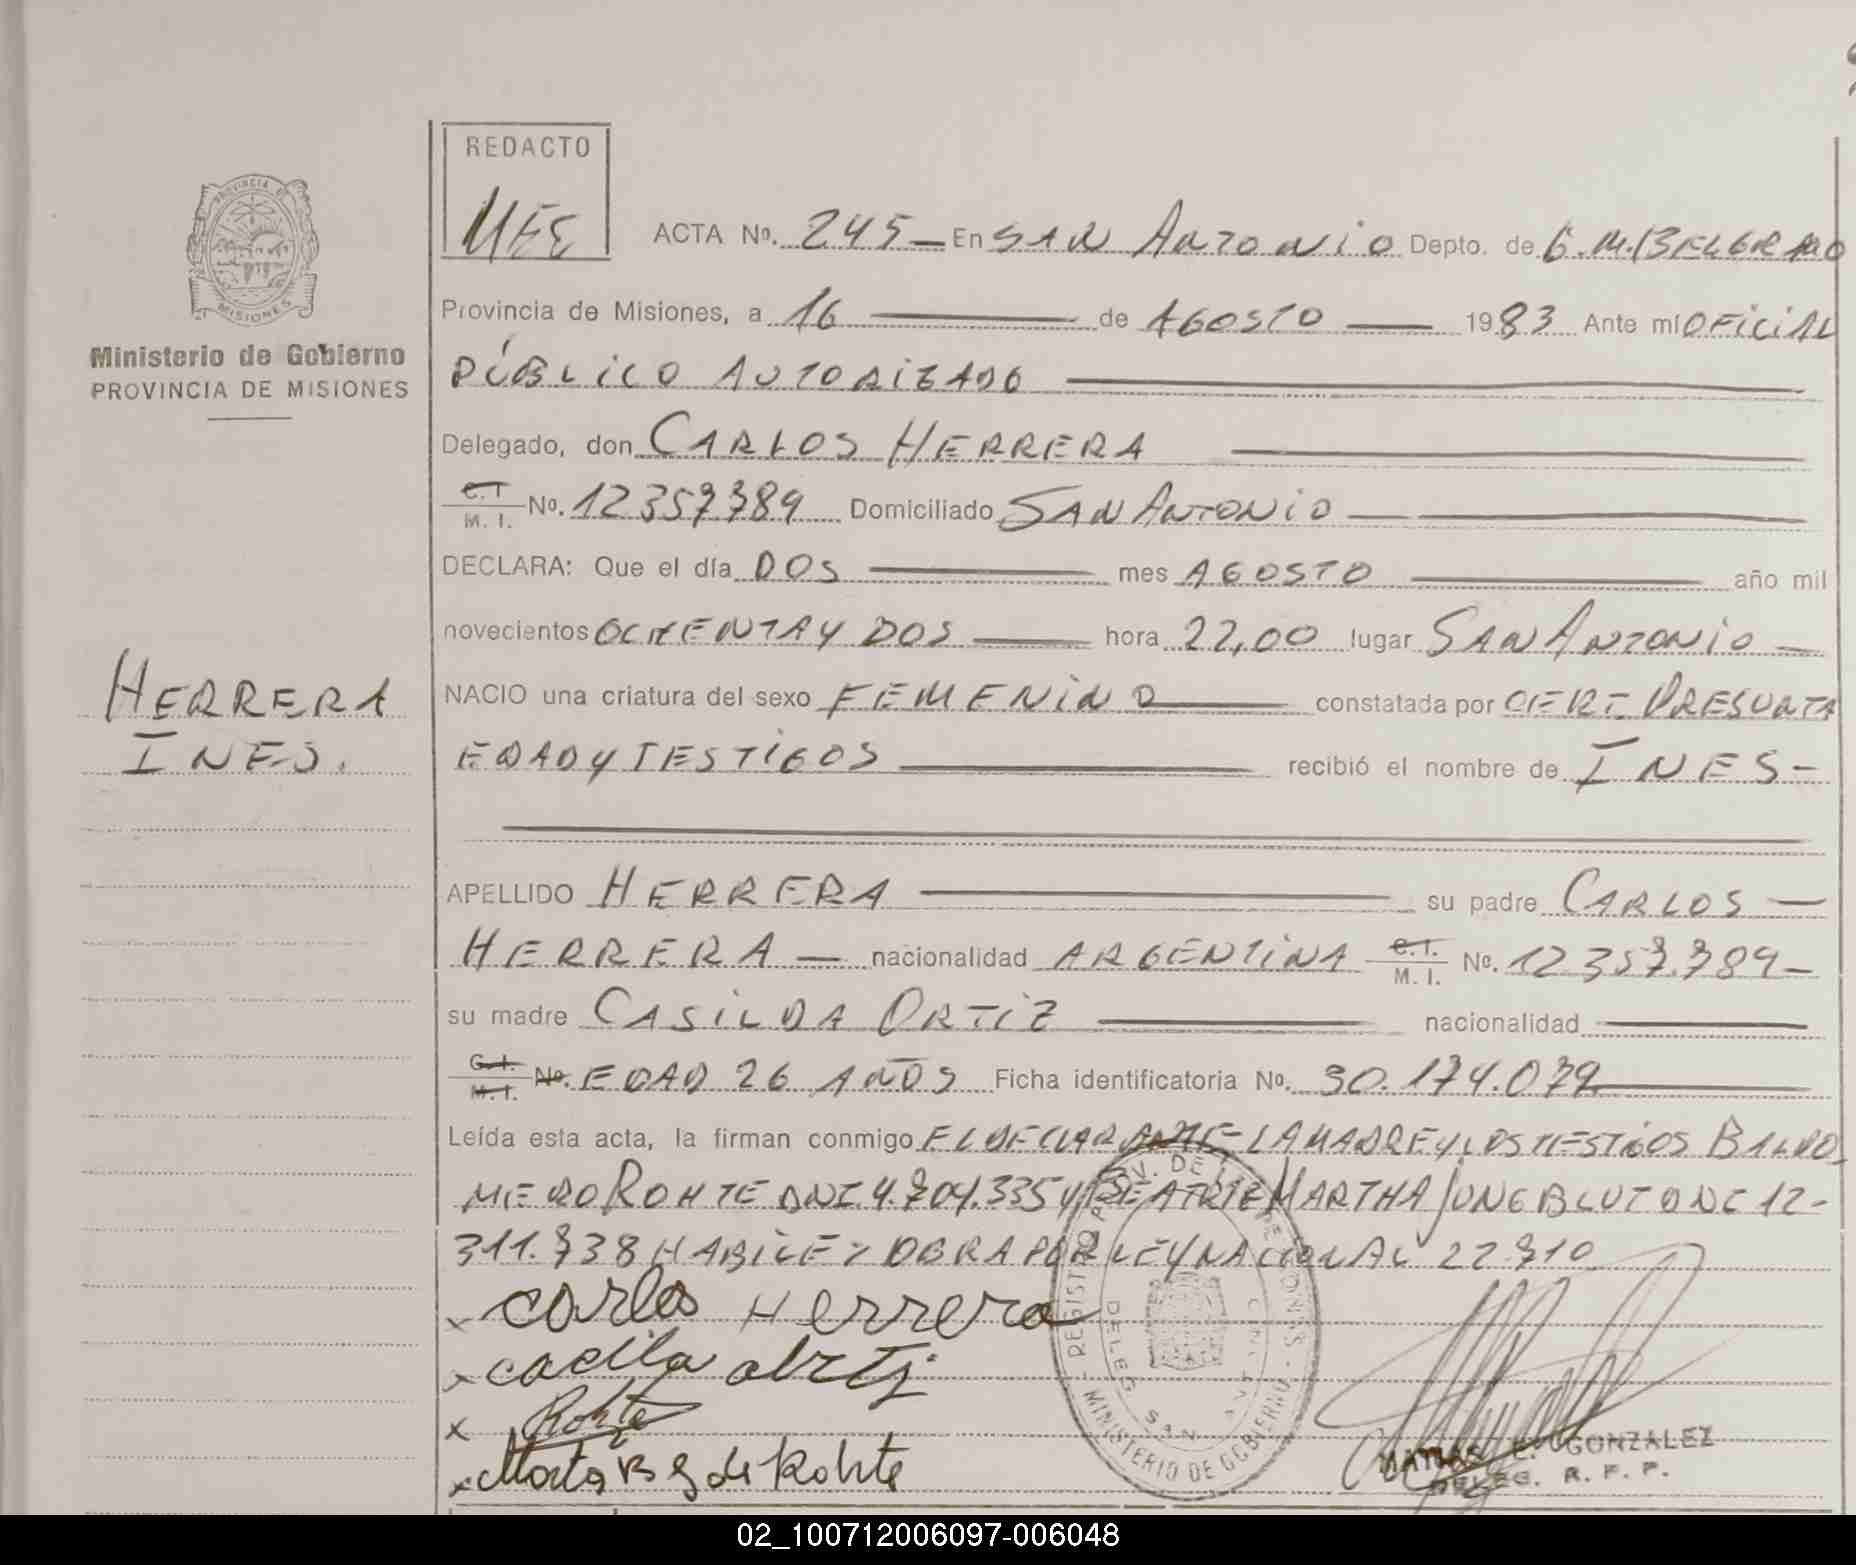 REDACTO
MEE
ACTA Nº. 245 — En SAN ANTONIO Depto. de G.M. BELGRANO
Provincia de Misiones, a 16 — de AGOSTO — 1983 Ante mí OFICIAL
PÚBLICO AUTORIZADO
Delegado, don CARLOS HERRERA
C.I. M. I. Nº. 12.357.789 Domiciliado SAN ANTONIO
DECLARA: Que el día DOS — mes AGOSTO — año mil
novecientos OCHENTA Y DOS — hora 22,00 lugar SAN ANTONIO —
NACIO una criatura del sexo FEMENINO — constatada por CERT. PRESUNTA
EDAD Y TESTIGOS — recibió el nombre de INES -
APELLIDO HERRERA — su padre CARLOS —
HERRERA — nacionalidad ARGENTINA C.I. M. I. Nº. 12.357.789 -
su madre CASILDA ORTIZ — nacionalidad —
C.I. M.I. Nº. EDAD 26 AÑOS Ficha identificatoria Nº. 30.174.079
Leída esta acta, la firman conmigo EL DECLARANTE LA MADRE Y LOS TESTIGOS BALDO
MERO ROHTE DNI 4.704.335 Y BEATRIZ MARTHA JUNGBLUT DNI 12-
311.738 HABILEZ OBRA POR LEY NACIONAL 22710
x carlos Herrera
x cacilla ortiz
x Rohte
x Marta B J de Rohte
Ministerio de Gobierno
PROVINCIA DE MISIONES
HERRERA
INES.
PROVINCIA DE
MISIONES
REGISTRO PROV. DE LAS PERSONAS
MINISTERIO DE GOBIERNO
DELEG. SAN
MATIAS E. GONZALEZ
DELEG. R. P. P.
02_100712006097-006048